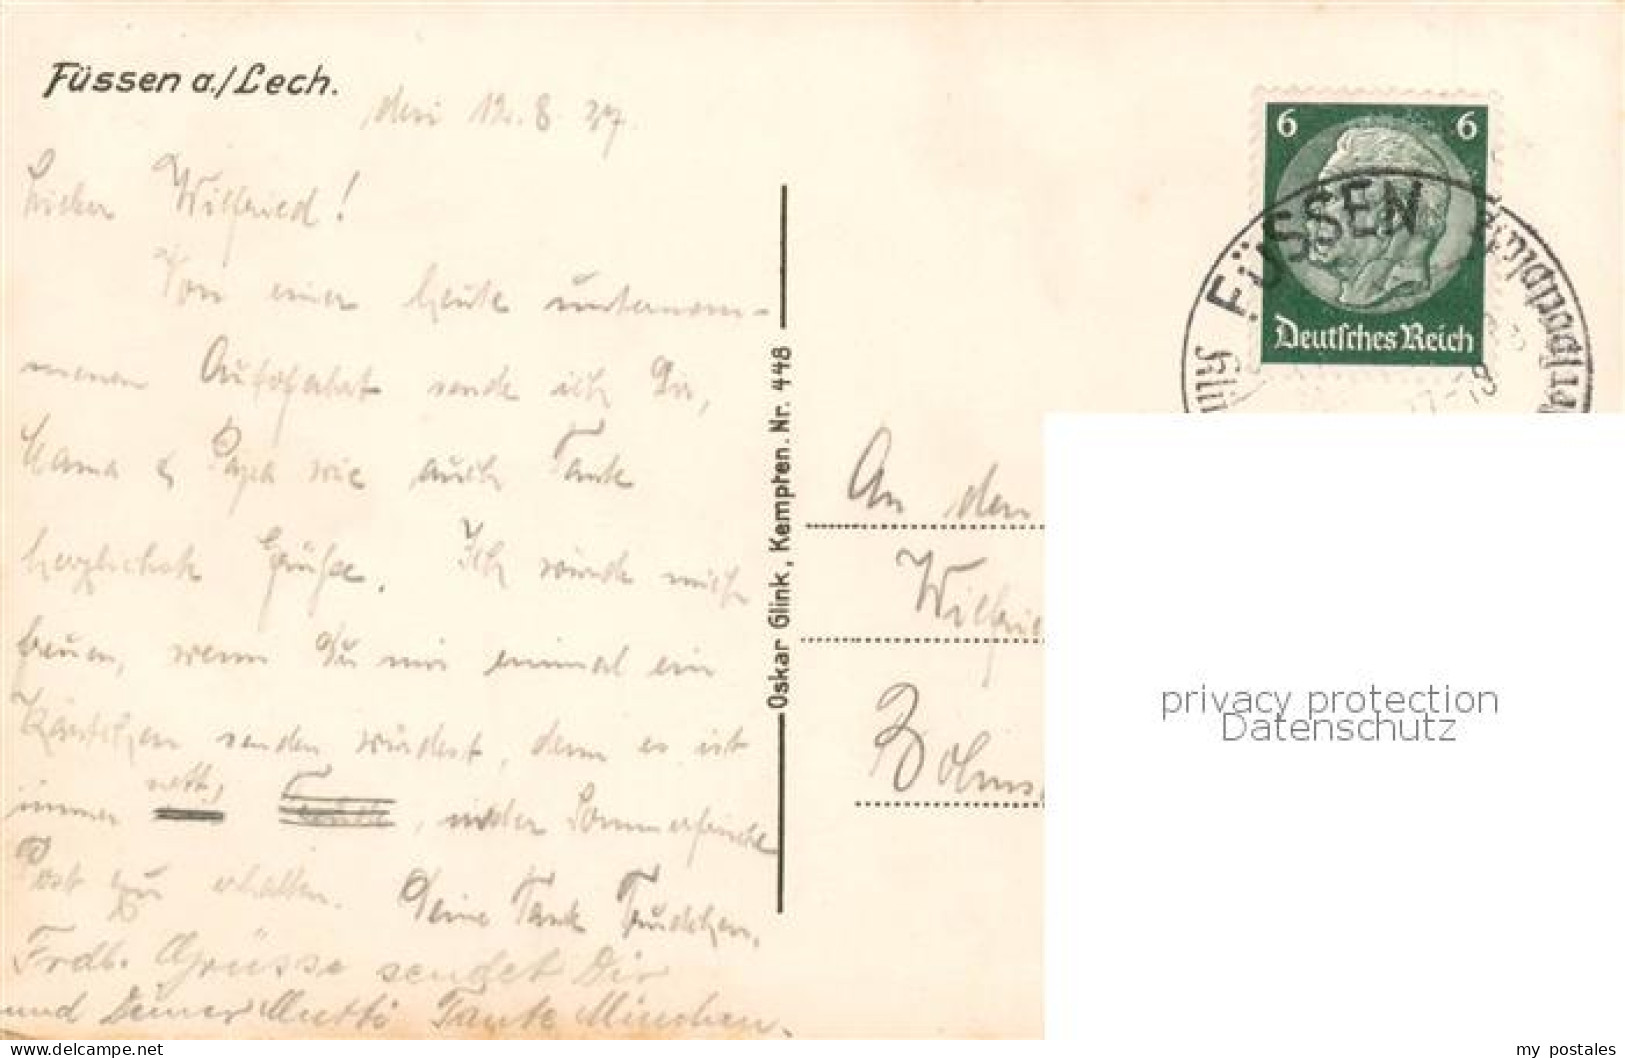 Füssen a./Lech.
den 12. 8. 37.
Lieber Wilfried!
Von einer heute unternom-
menen Autofahrt sende ich Dir,
Mama & Papa wie auch Tante
herzlichste Grüße. Ich würde mich
freuen, wenn Du mir einmal ein
Kärtchen senden würdest, denn es ist
immer nett, in der Sommerfrische
Post zu erhalten. Deine Tante Trudchen.
Frdl. Grüsse sendet Dir
und Deiner Mutti Tante Minchen.
Oskar Glink, Kempten. Nr. 448
6 6
Deutsches Reich
FÜSSEN
An den
Wilfrie
privacy protection
Datenschutz
www.delcampe.net
my_postales